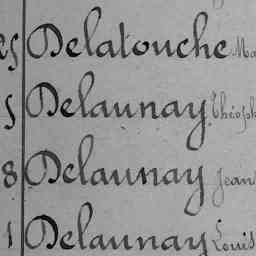 25 Delatouche Ma
5 Delaunay Théoph
8 Delaunay Jean
1 Delaunay Louis